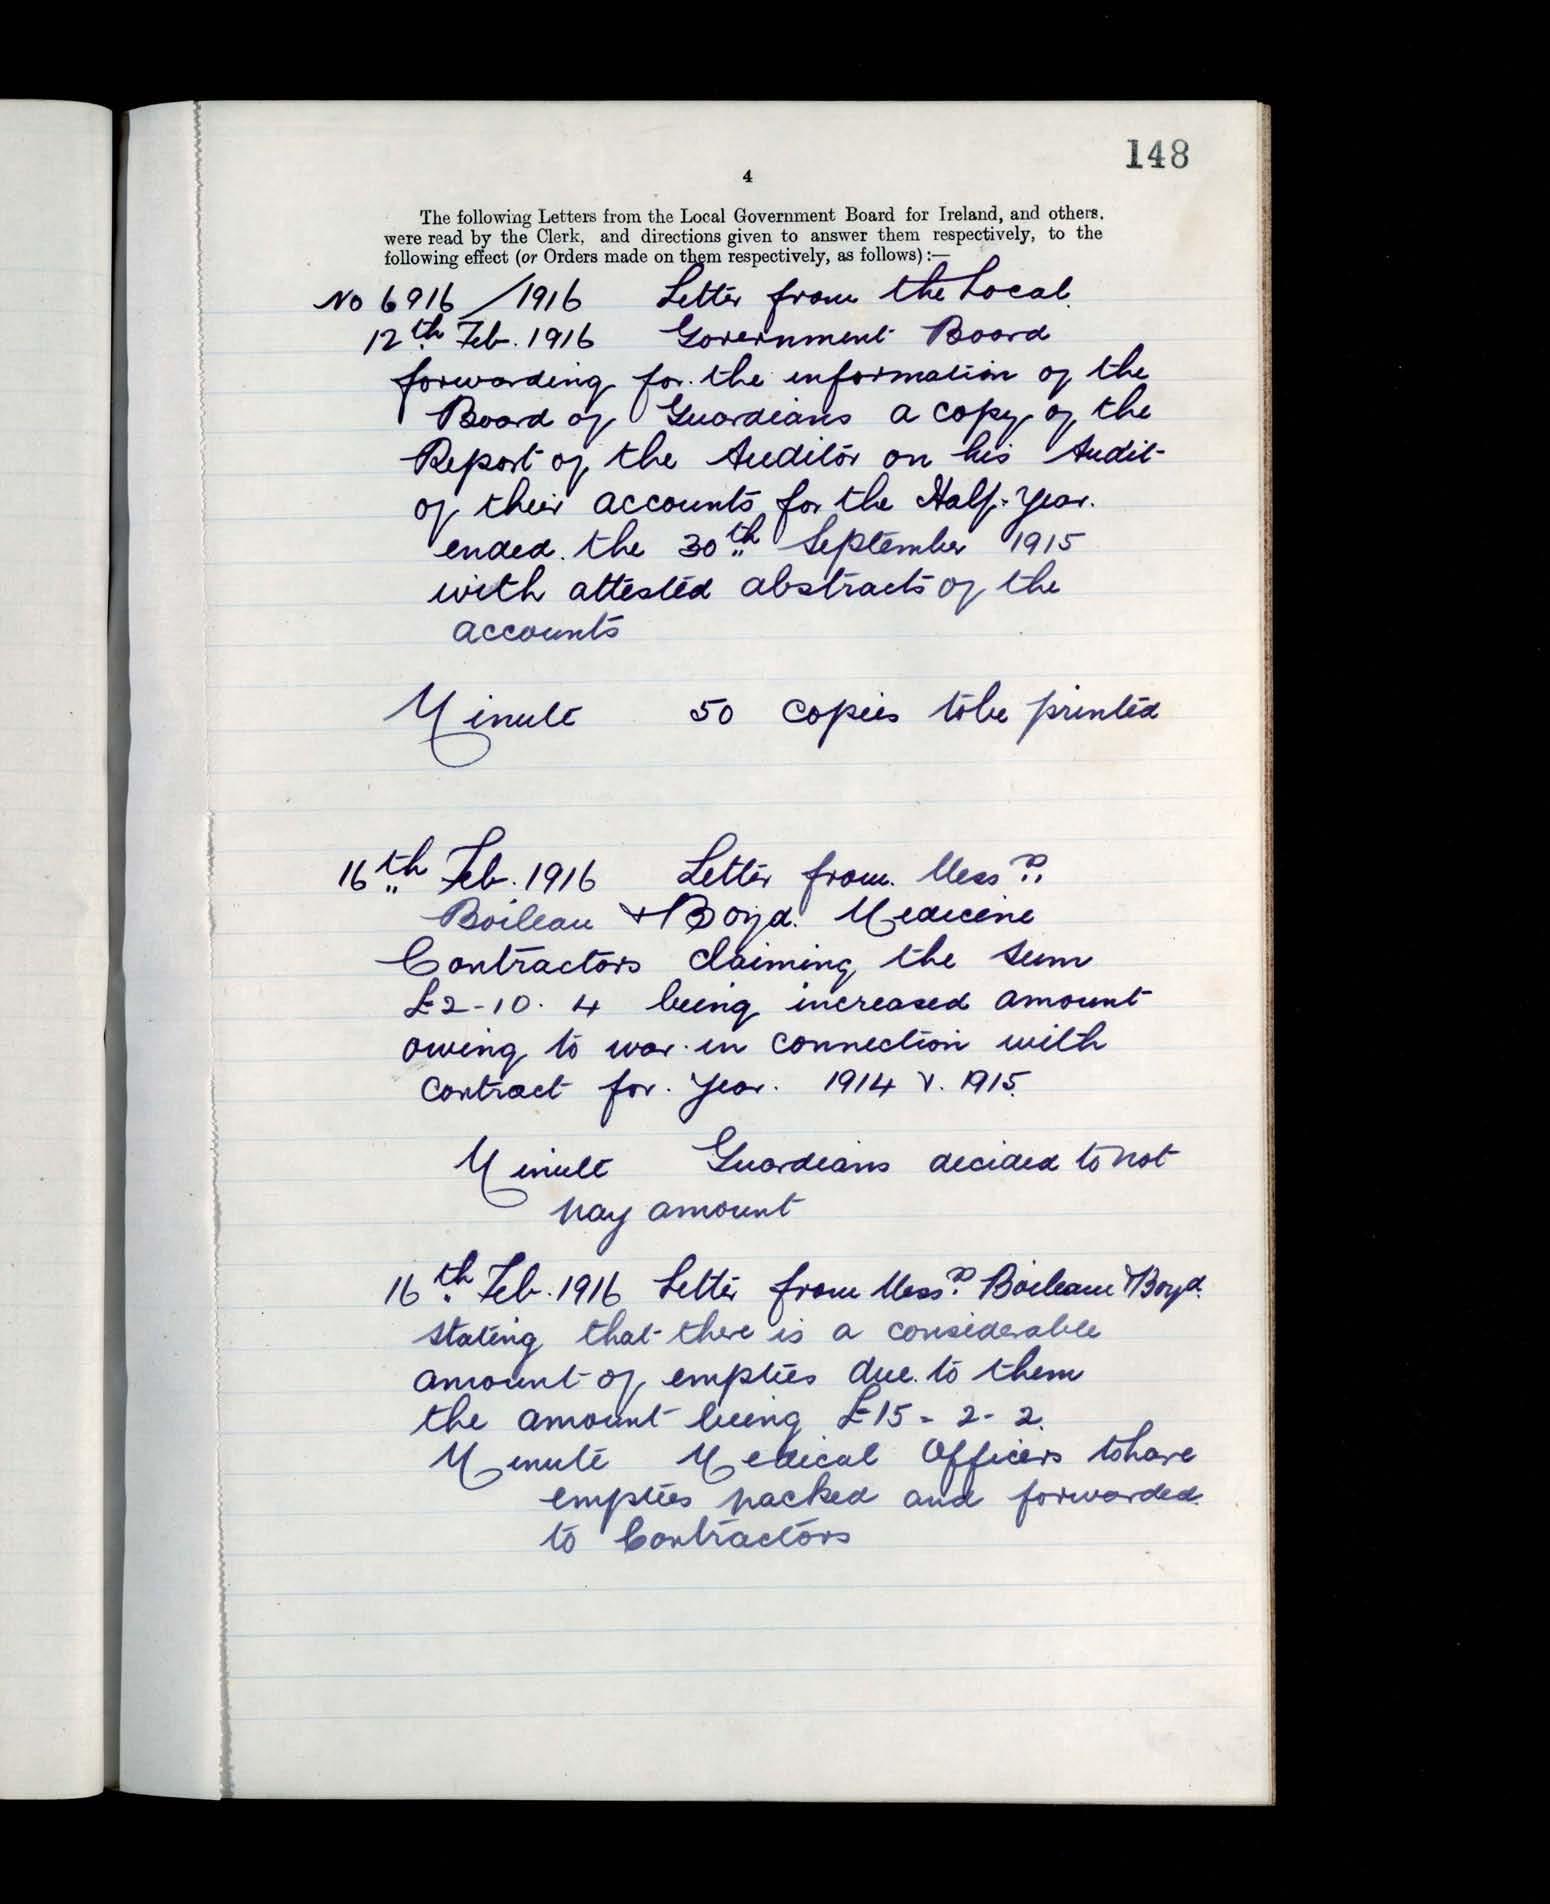 148
4
The following Letters from the Local Government Board for Ireland, and others,
were read by the Clerk, and directions given to answer them respectively, to the
following effect (or Orders made on them respectively, as follows):—
No 6916/1916 Letter from the Local
12th Feb. 1916 Government Board
forwarding for the information of the
Board of Guardians a copy of the
Report of the Auditor on his Audit
of their accounts for the Half-Year
ended the 30th September 1915
with attested abstracts of the
accounts
Minute 50 copies to be printed
16th Feb. 1916 Letter from Messrs
Boileau & Boyd. Medicine
Contractors claiming the sum
£2-10.4 being increased amount
owing to war in connection with
contract for year 1914 & 1915.
Minute Guardians decided to not
pay amount
16th Feb. 1916 Letter from Messrs Boileau & Boyd.
stating that there is a considerable
amount of empties due to them
the amount being £15-2-2.
Minute Medical Officers to have
empties packed and forwarded
to Contractors